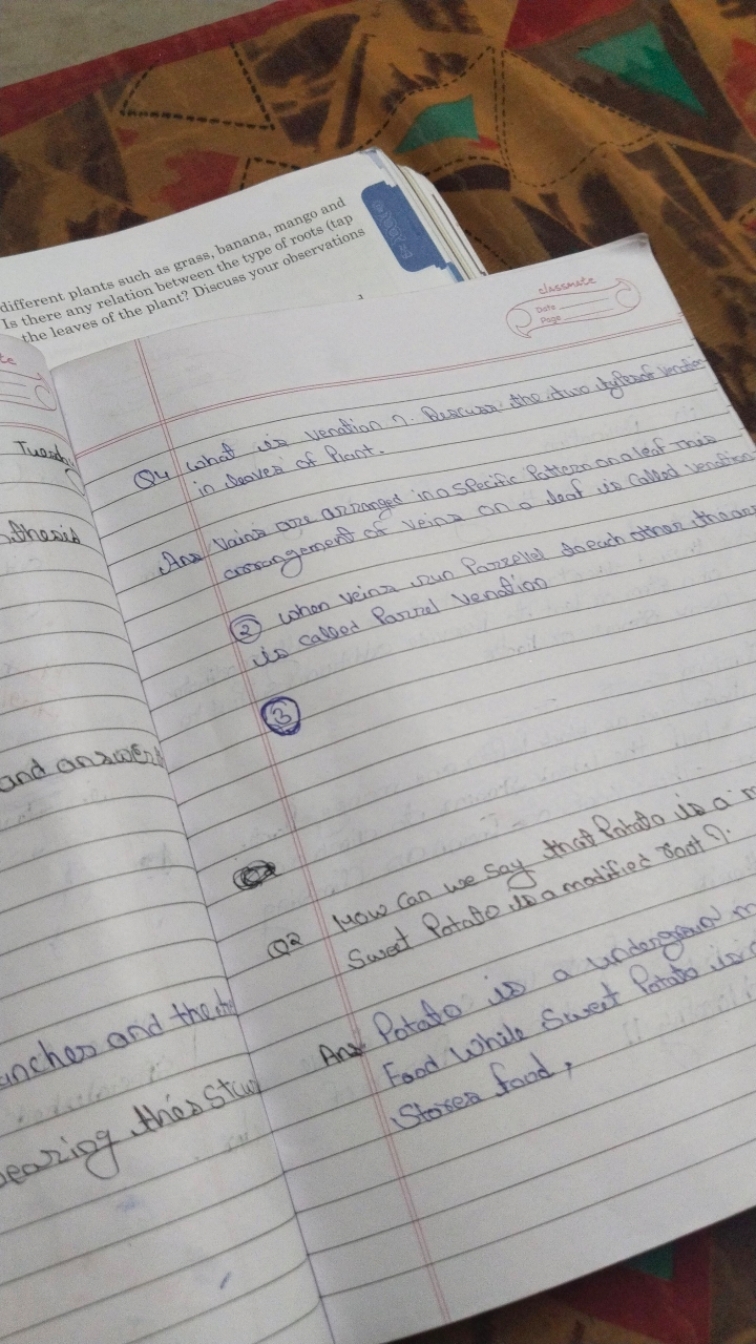 different plants such as grass, banana, mango and
Is there any relation between the type of roots (tap
the leaves of the plant? Discuss your observations
classmate
Date
Page
Q4 what is venation ?. Discuss the two types of venation
in leaves of Plant.
Ans Vains are arranged in a specific Pattern on a leaf this
arrangement of veins on a leaf is called venation
② when veins run Parrellel to each other the
is called Parrrel venation
③
Q2 How can we say that Potato is a m
Sweet Potato is a modified root ?.
Ans Potato is a undergroun m
Food While Sweet Potato is
Stores food,
Tuesd
thesis
and answer
anches and the
bearing this Stru